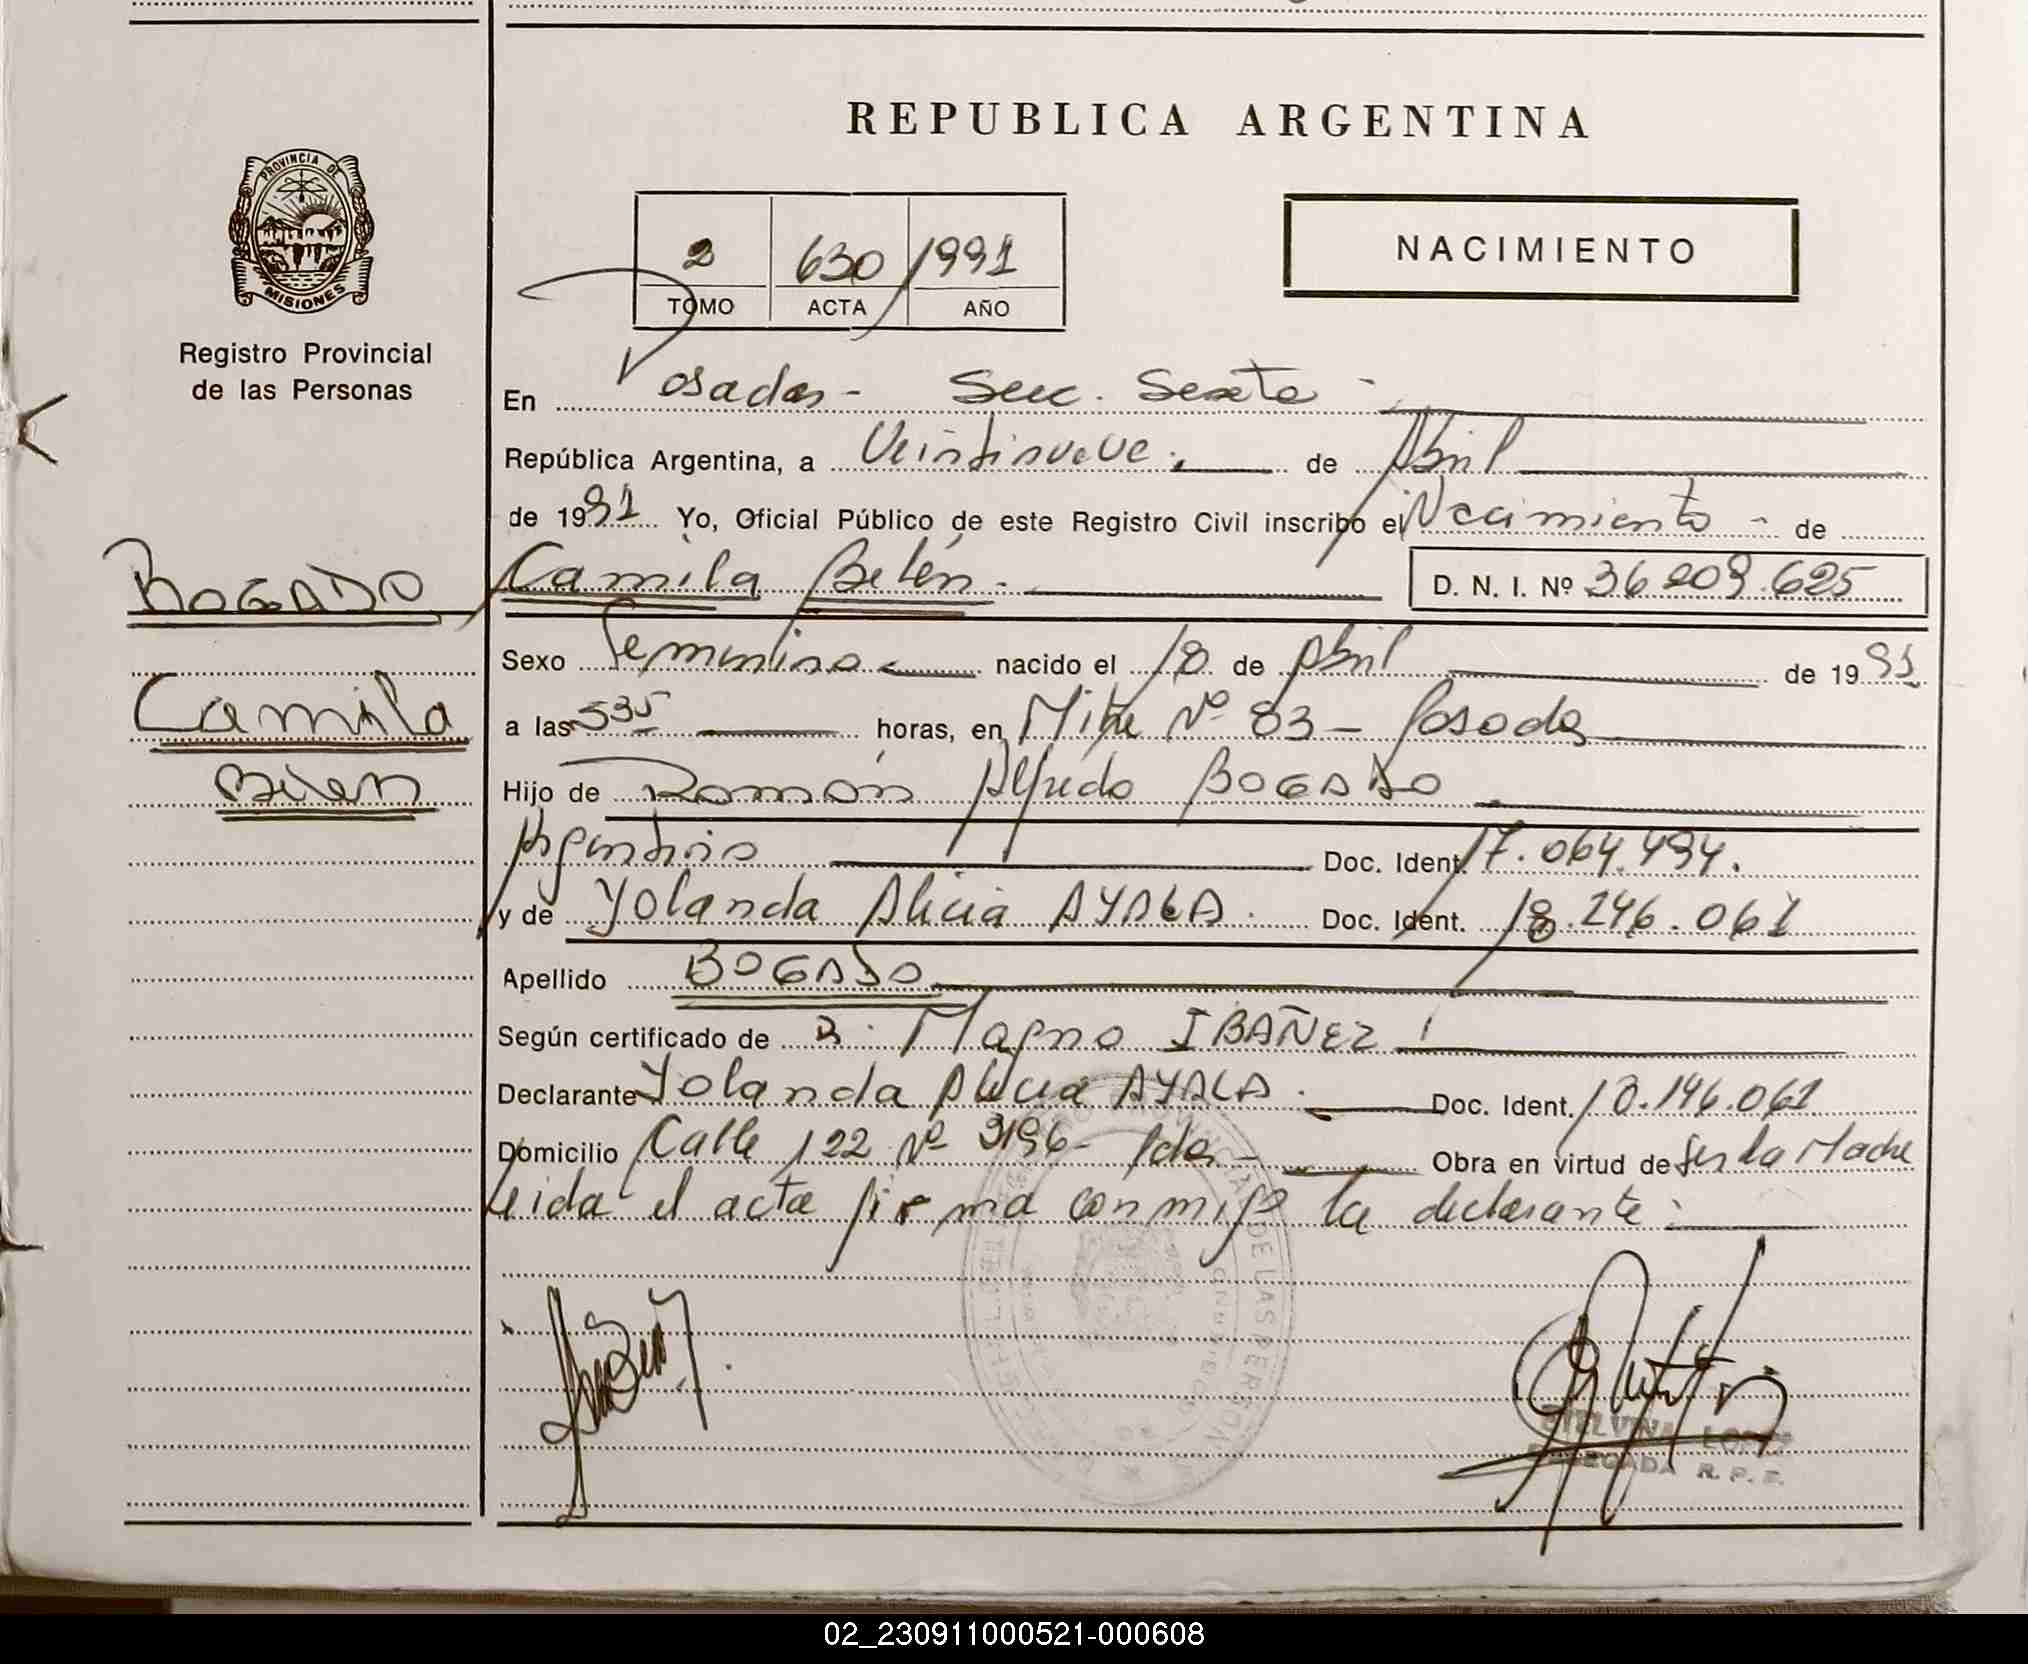 REPUBLICA ARGENTINA
PROVINCIA DE
MISIONES
Registro Provincial
de las Personas
2 630 1991
TOMO ACTA AÑO
NACIMIENTO
En Posadas - Secc. Sexta -
República Argentina, a Veintinueve.- de Abril
de 1991 Yo, Oficial Público de este Registro Civil inscribo el Nacimiento - de
BOGADO
Camila
Belen
Camila Belén.- D. N. I. Nº 36 209.625
Sexo Femenino nacido el 18 de Abril de 1991
a las 535 horas, en Mitre Nº 83 - Posadas
Hijo de Román Alfredo BOGADO
Argentino Doc. Ident. 17.064.494.
y de Yolanda Alicia AYALA. Doc. Ident. 18.246.061
Apellido BOGADO
Según certificado de Magno IBAÑEZ
Declarante Yolanda Alicia AYALA. Doc. Ident. 18.146.061
Domicilio Calle 122 Nº 3196 - Pdas - Obra en virtud de Ser la Madre
Leida el acta firma conmigo la declarante:
DE LAS PERSONAS
ETELVINA LOPEZ
DELEGADA R. P. P.
02_230911000521-000608